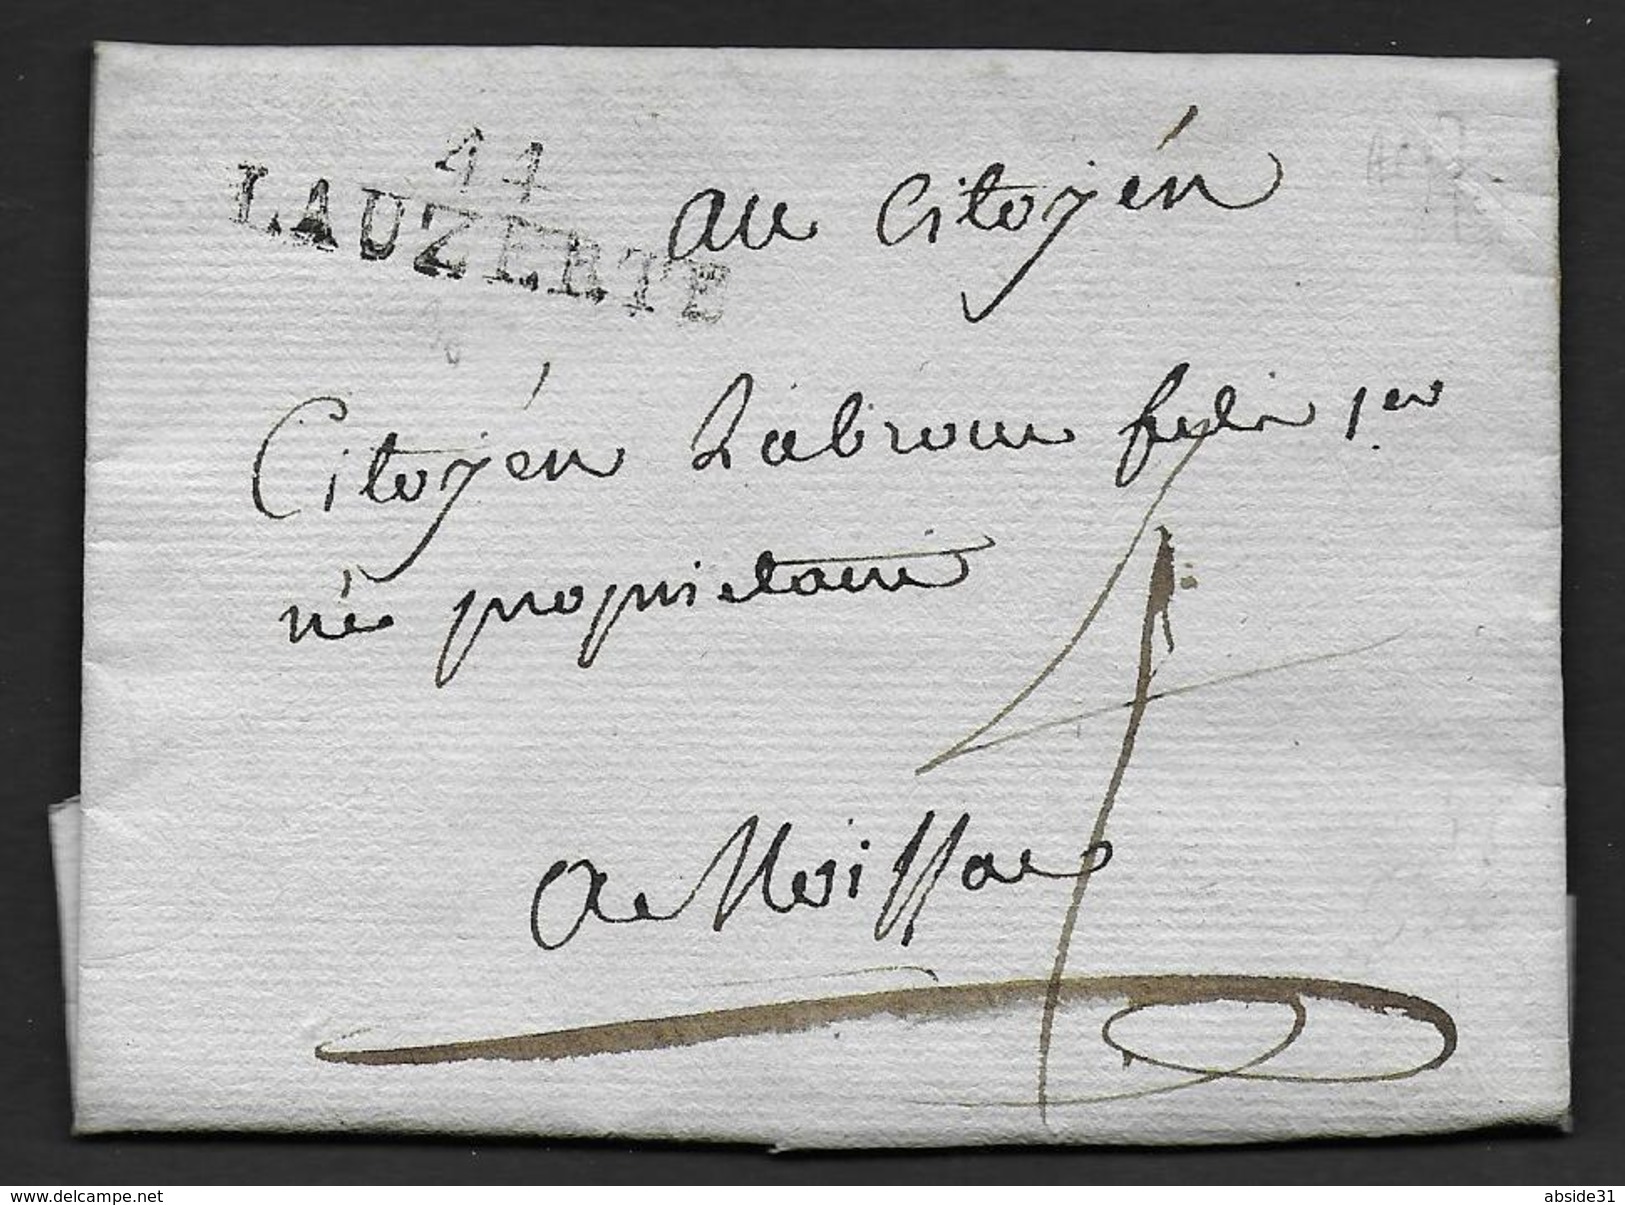 44
LAUZERTE
au Citoyén
Citoyén Labroue fuln 1er
né propriétaire
a Moissac
www.delcampe.net
abside31